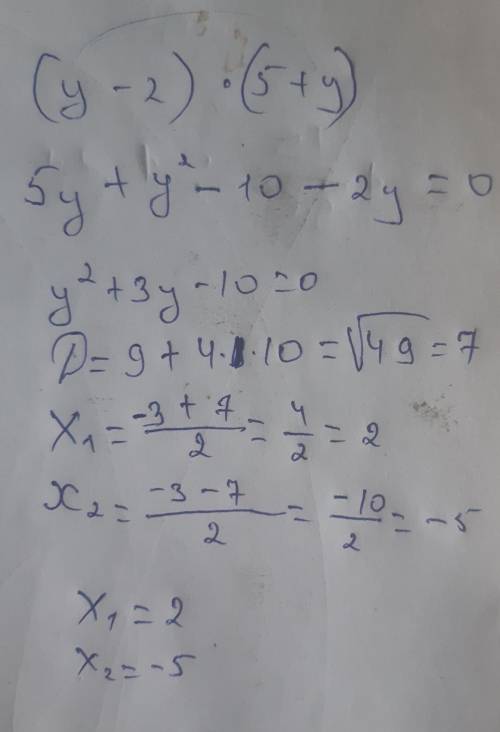 (y - 2) · (5 + y)
5y + y² - 10 - 2y = 0
y² + 3y - 10 = 0
D = 9 + 4·1·10 = √49 = 7
X₁ = (-3 + 7)/2 = 4/2 = 2
x₂ = (-3 - 7)/2 = (-10)/2 = -5
X₁ = 2
x₂ = -5